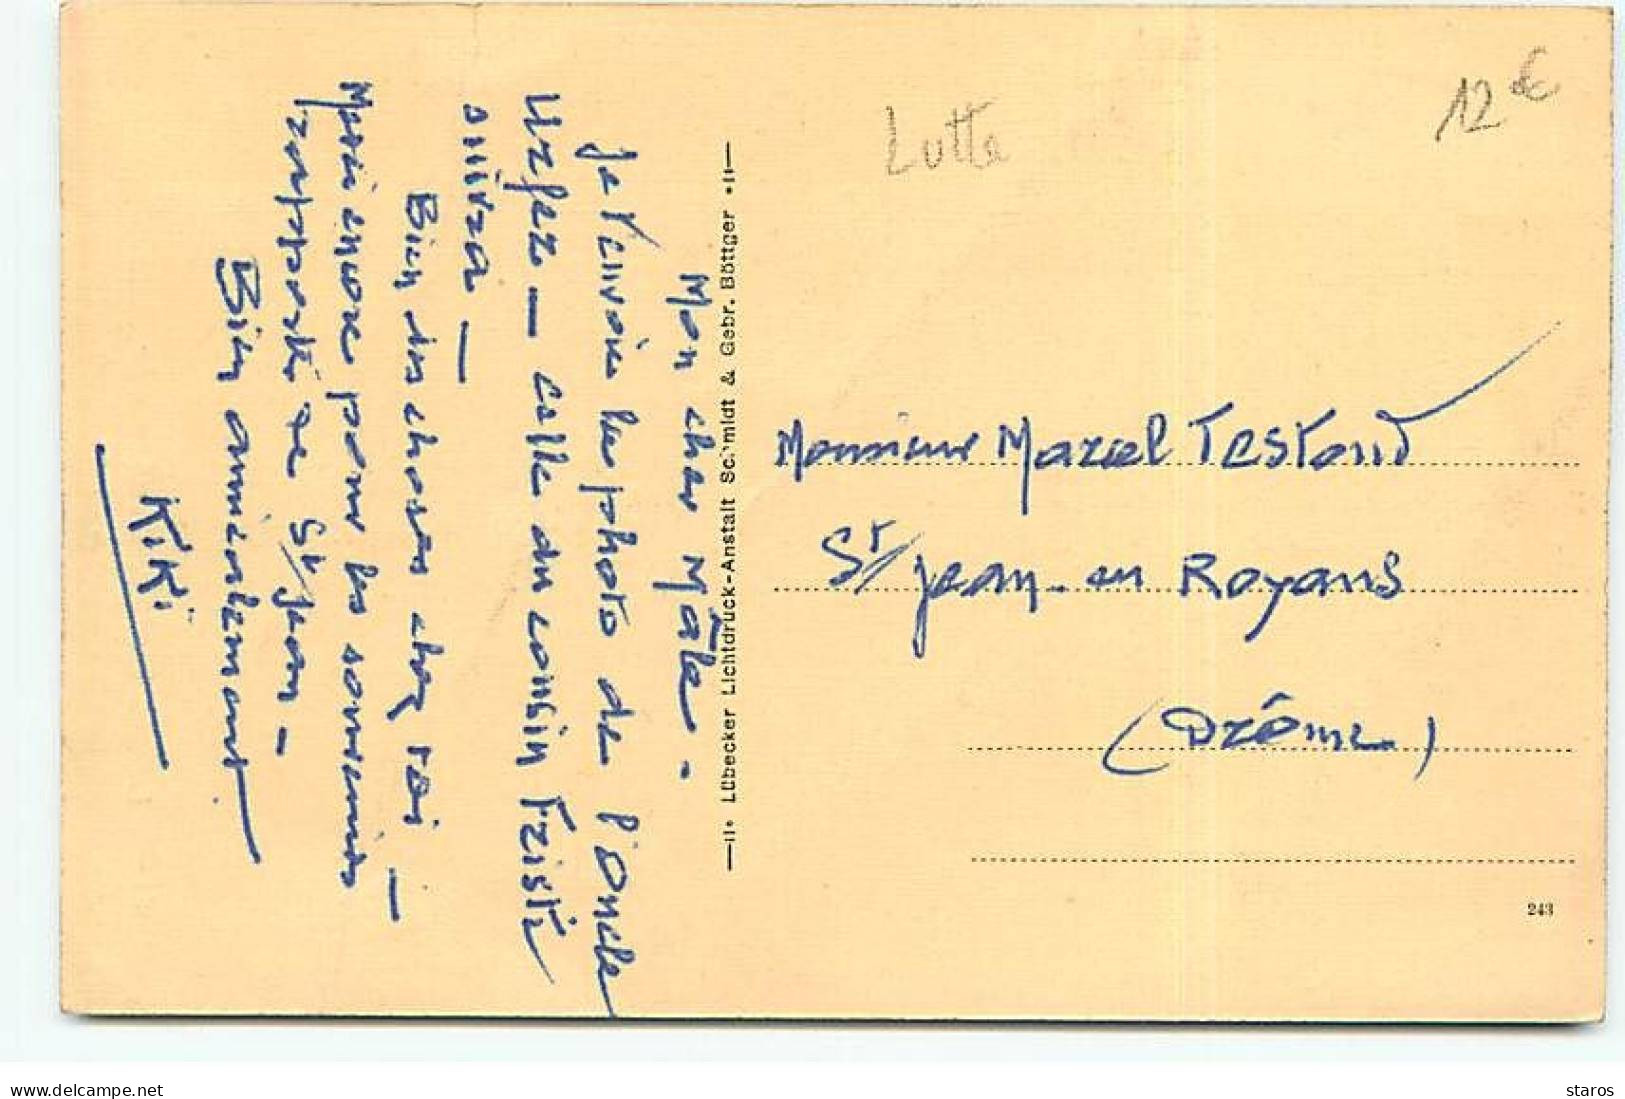 Lutte
12 €
Mon cher Mâle -
Je t'envoie les photos de l'oncle
Urfez - celle du cousin Fristi
suivra -
Bien des choses chez toi -
Merci encore pour les souvenirs
rapportés de St Jean -
Bien amicalement
KiKi
Lübecker Lichtdruck-Anstalt Schmidt & Gebr. Böttger
Monsieur Marcel Testoud
St Jean-en Royans
(Drôme)
243
delcampe.net
staros